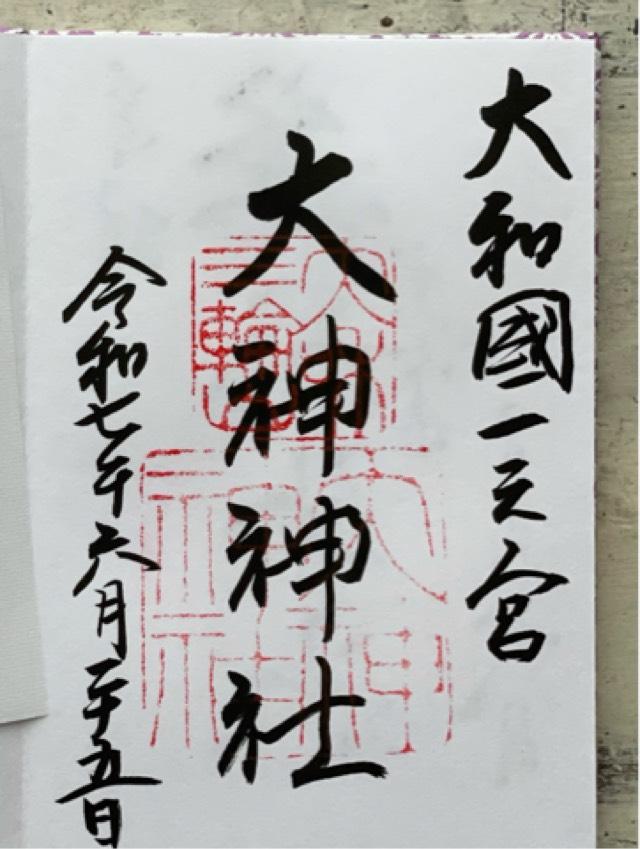 大和國一之宮
大神神社
令和七年六月二十五日
大神
神社